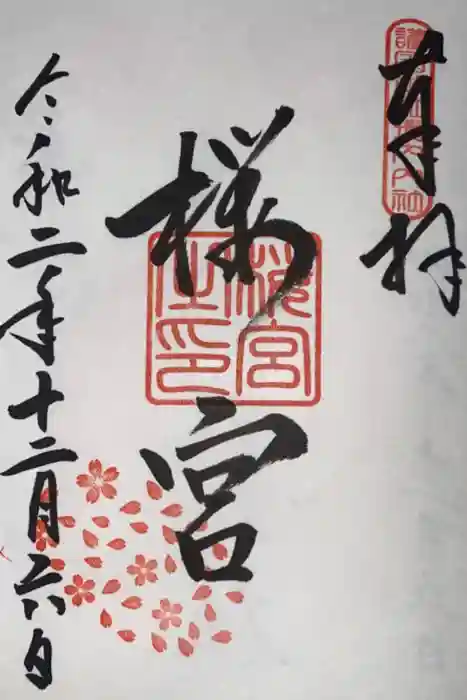 奉拝
桜宮
桜宮之印
令和二年十二月六日